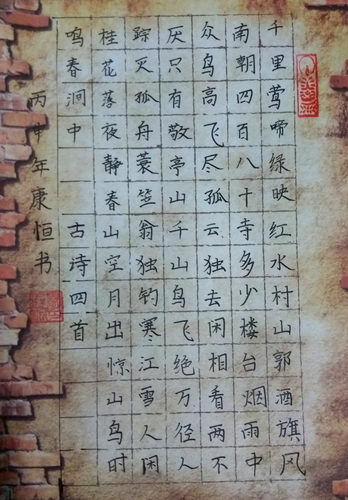 千里莺啼绿映红水村山郭酒旗风
南朝四百八十寺多少楼台烟雨中
众鸟高飞尽孤云独去闲相看两不
厌只有敬亭山千山鸟飞绝万径人
踪灭孤舟蓑笠翁独钓寒江雪人闲
桂花落夜静春山空月出惊山鸟时
鸣春涧中 古诗四首
丙申年康恒书